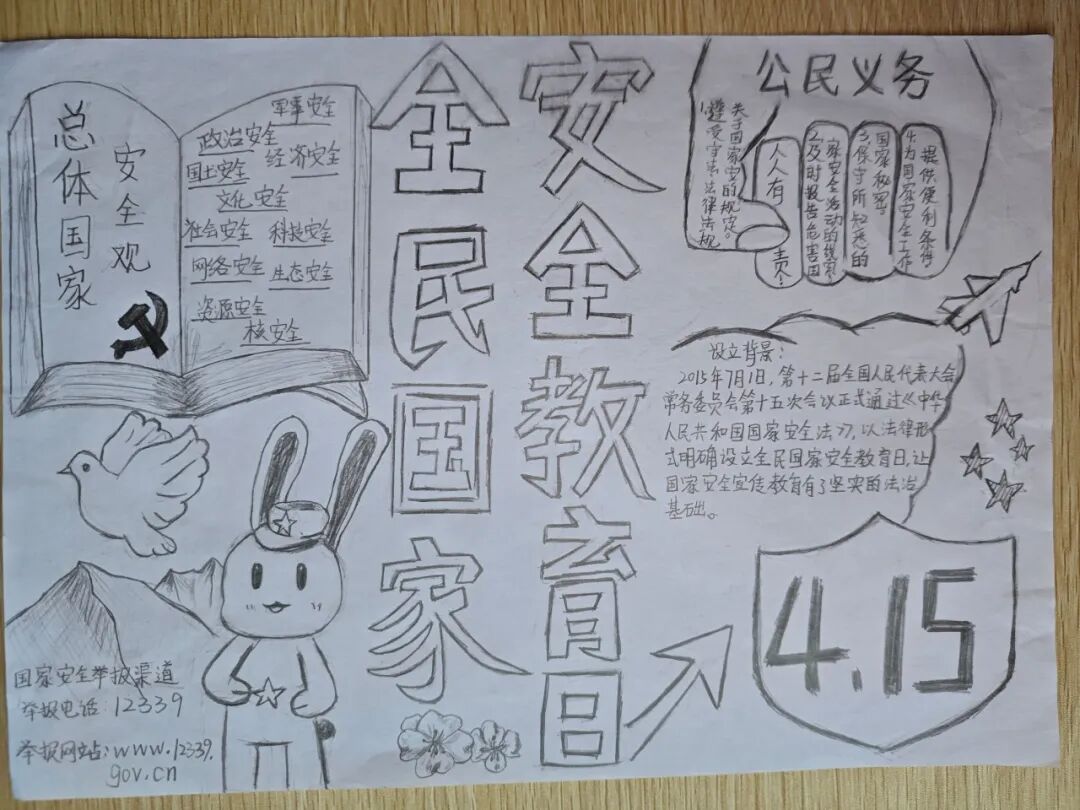 总体国家
安全观
军事安全
政治安全
经济安全
国土安全
文化安全
社会安全
科技安全
网络安全
生态安全
资源安全
核安全
全民国家
安全教育日
公民义务
1.遵受守法法律法规
关于国家安的规定。
人人有责！
2.及时报告危害国
家安全活动的线索
3.保守所知悉的
国家秘密
4.为国家安全工作
提供便利条件
设立背景：
2015年7月1日，第十二届全国人民代表大会
常务委员会第十五次会议正式通过《中华
人民共和国国家安全法》，以法律形
式明确设立全民国家安全教育日，让
国家安全宣传教育有了坚实的法治
基础。
4.15
国家安全举报渠道
举报电话：12339
举报网站：www.12339.
gov.cn